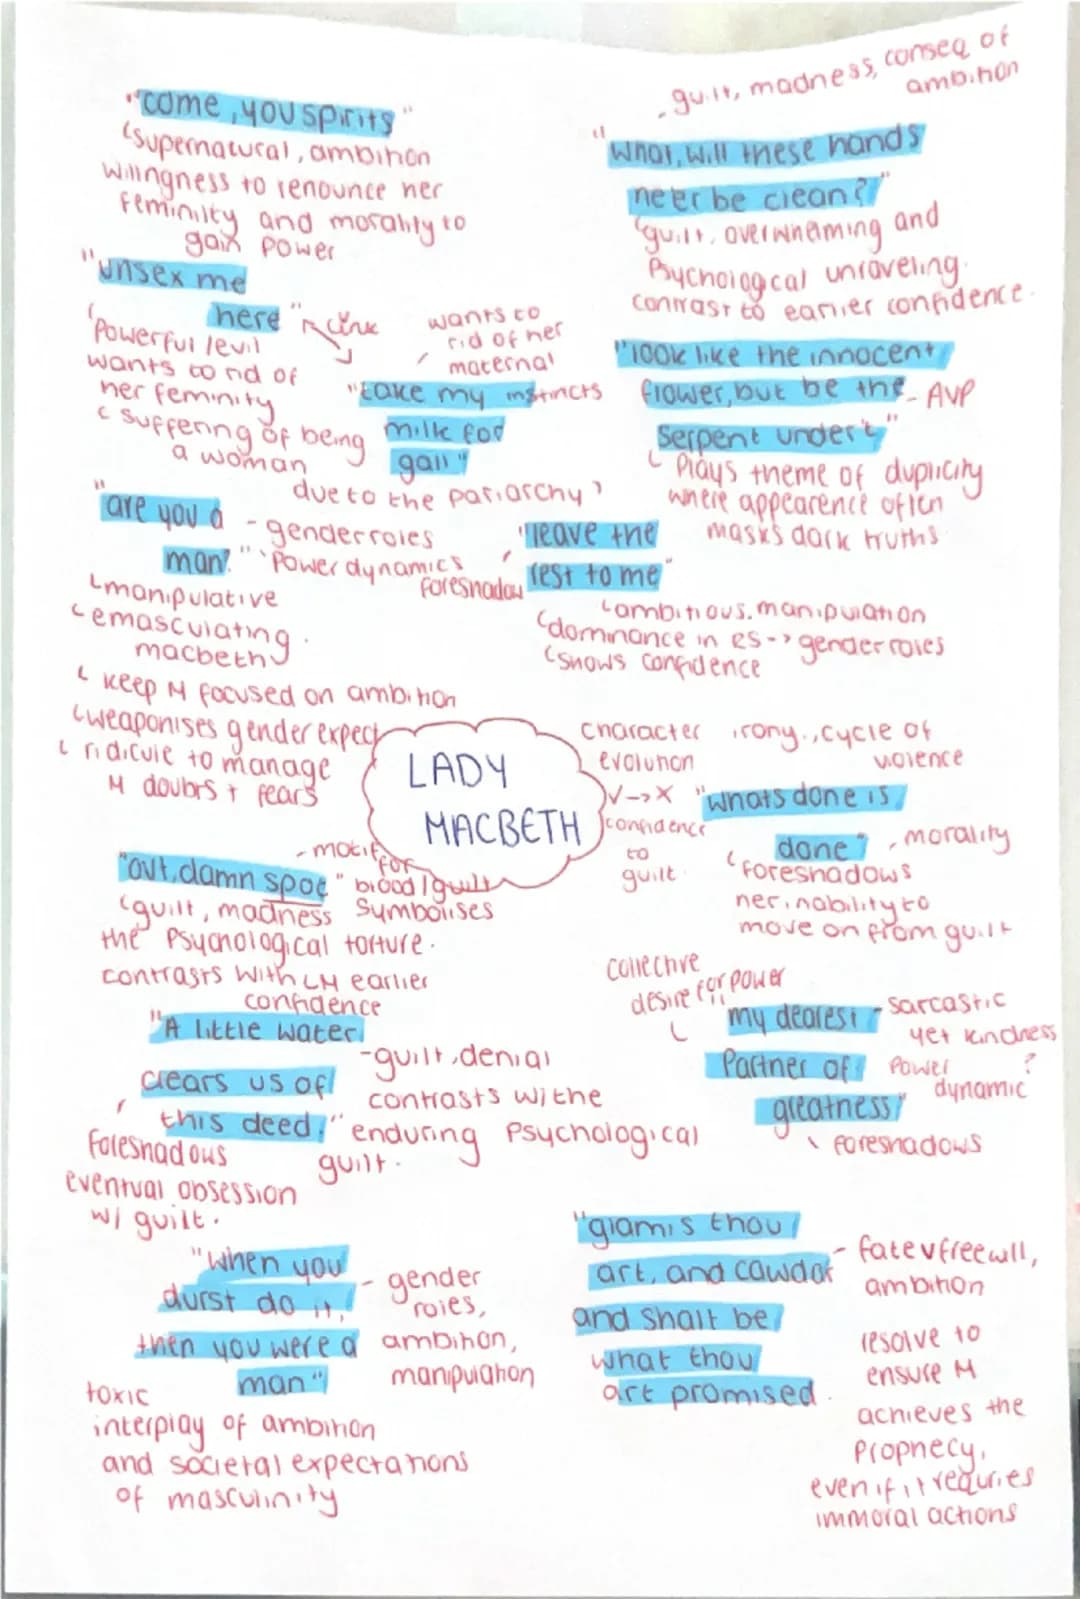 "come, you spirits"
supernatural, ambition
willingness to renounce her
feminity and morality to
gain power
"unsex me
here"
link
powerful / evil
wants to rid of
her feminity
suffering of being
a woman
due to the patriarchy?
wants to
rid of her
maternal
instincts
"take my
milk for
gall"
"are you a
man?"
- gender roles
power dynamics
manipulative
emasculating
macbeth
keep M focused on ambition
weaponises gender expect
ridicule to manage
M doubts + fears
guilt, madness, conseq of
ambition
"what, will these hands
ne'er be clean?"
guilt, overwhelming and
Psychological unraveling.
contrast to earlier confidence.
"look like the innocent
flower, but be the
serpent under't"
- AVP
Plays theme of duplicity
where appearence often
masks dark truths
"leave the
rest to me"
foreshadow
ambitious, manipulation
dominance in RS -> gender roles
shows confidence
LADY
MACBETH
character
evolution
V -> X
confidence
to
guilt
irony, cycle of
violence
"whats done is
done"
, morality
foreshadows
her inability to
move on from guilt
"out, damn spot"
- motif for
blood / guilt
guilt, madness symbolises
the psychological torture.
contrasts with LM earlier
confidence
"A little water
clears us of
this deed."
- guilt, denial
contrasts w/ the
enduring psychological
guilt.
foreshadows
eventual obsession
w/ guilt.
collective
desire for power
"my dearest
Partner of
greatness"
- sarcastic
yet kindness
?
Power
dynamic
foreshadows
"when you
durst do it,
then you were a
man"
- gender
roles,
ambition,
manipulation
toxic
interplay of ambition
and societal expectations
of masculinity
"glamis thou
art, and cawdor
and shalt be
what thou
art promised.
- fate v freewill,
ambition
resolve to
ensure M
achieves the
Prophecy,
even if it requries
immoral actions